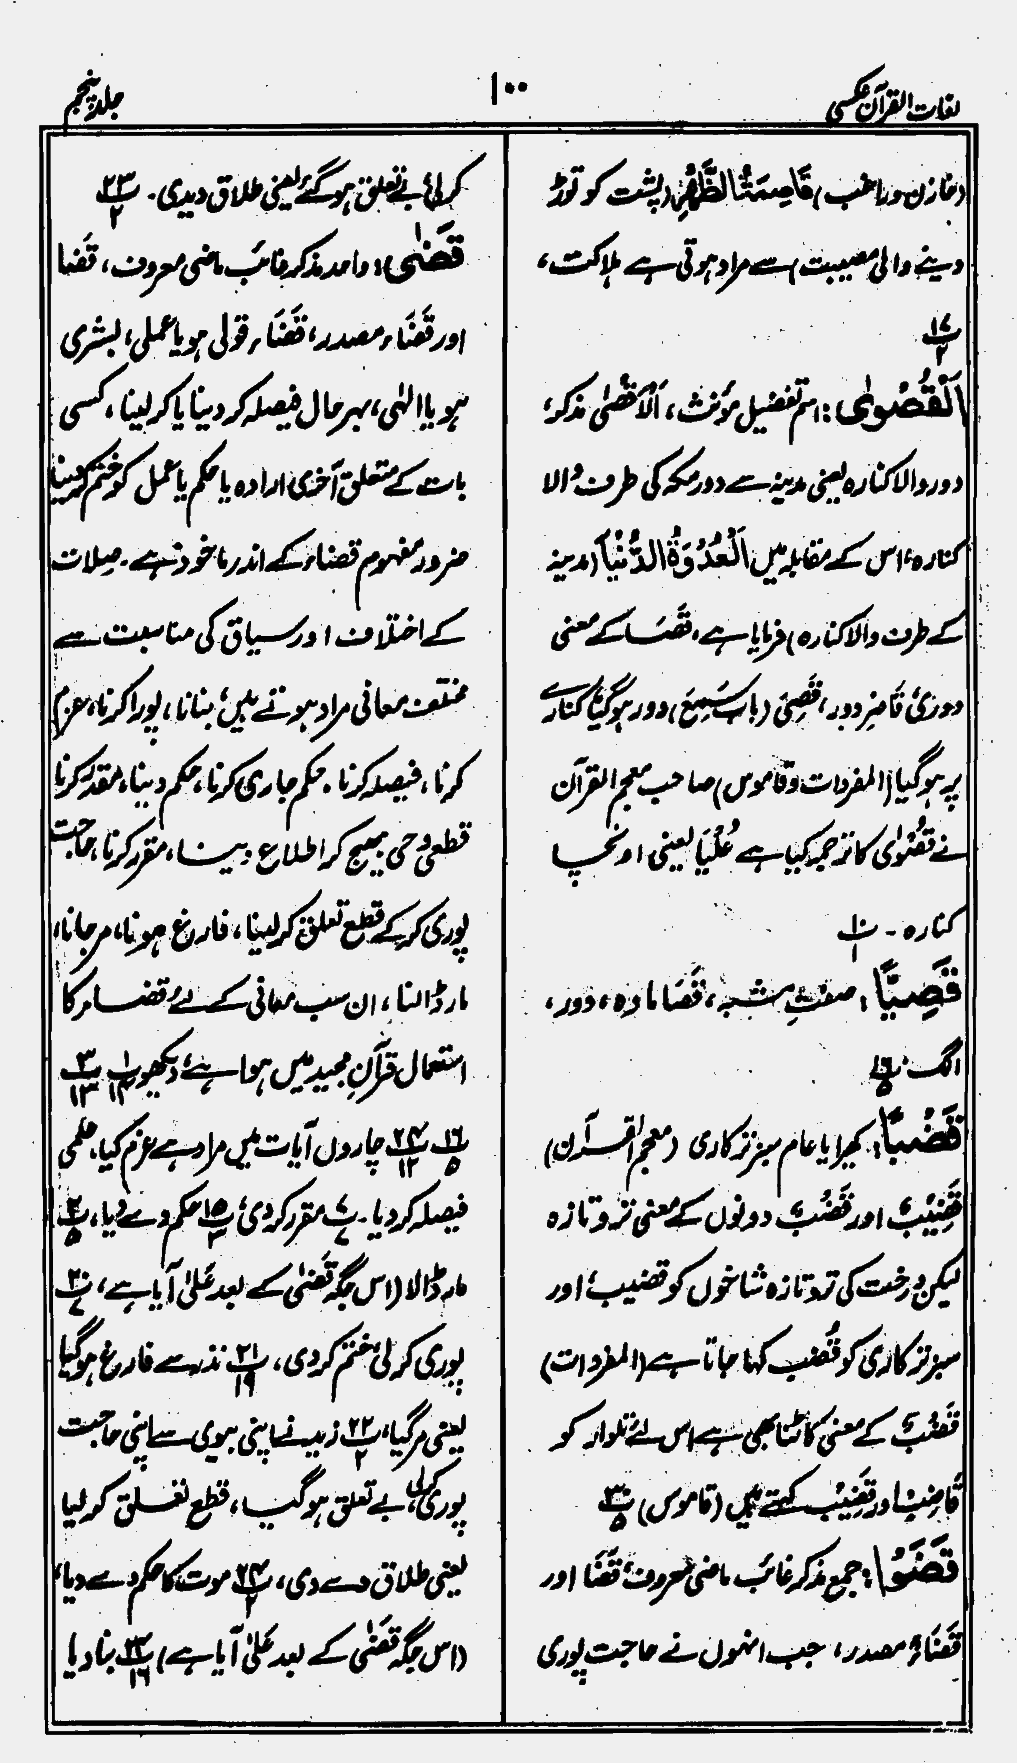 لغات القرآن عکسی
۱۰۰
جلد پنجم
(خازن و راغب) قَاصِمَةُ الظَّهْرِ (پشت کو توڑ
دینے والی مصیبت) سے مراد ہوتی ہے ہلاکت،
پ۱۷/۲
اَلْقُصْوٰی: اسم تفضیل مؤنث، اَلْاَقْصٰی مذکر،
دور والا کنارہ یعنی مدینہ سے دور مکہ کی طرف والا
کنارہ، اس کے مقابلہ میں اَلْعُدْوَةُ الدُّنْیَا (مدینہ
کے طرف والا کنارہ) فرمایا ہے، قَصَا کے معنی
دوری، قَاصٍ دور، قَصِیَ (باب سَمِعَ) دور ہوگیا، کنارے
پر ہوگیا (المفردات و قاموس) صاحب معجم القرآن
نے قُصْوٰی کا ترجمہ کیا ہے عُلْیَا یعنی اونچا
کنارہ۔ پ۱۰/۱
قَصِیًّا: صفت مشبہ، قَصَا مادہ، دور،
الگ پ۱۶/۵
قَضْبًا: کھیرا یا عام سبز ترکاری (معجم القرآن)
قَضِیْبٌ اور قَضْبٌ دونوں کے معنی تر و تازہ
لیکن درخت کی تر و تازہ شاخوں کو قضیب، اور
سبز ترکاری کو قَضب کہا جاتا ہے (المفردات)
قَضْبٌ کے معنی کاٹنا بھی ہے اس لئے تلوار کو
قَاضِبْ اور قَضِیْب کہتے ہیں (قاموس) پ۳۰/۵
قَضَوْا: جمع مذکر غائب ماضی معروف، قَضَا اور
قَضَاءٌ مصدر، جب انہوں نے حاجت پوری
کرلی، بے تعلق ہوگئے یعنی طلاق دیدی۔ پ۲۲/۲
قَضٰی: واحد مذکر غائب ماضی معروف، قَضَا
اور قَضَاء مصدر، قَضَاء قولی ہو یا عملی، بشری
ہو یا الٰہی، بہر حال فیصلہ کر دینا یا کر لینا، کسی
بات کے متعلق آخری ارادہ یا حکم یا عمل کو ختم کر دینا
ضرور مفہوم قضاء کے اندر ماخوذ ہے۔ صِلات
کے اختلاف اور سیاق کی مناسبت سے
مختلف معانی مراد ہوتے ہیں، بنانا، پورا کرنا، عزم
کرنا، فیصلہ کرنا، حکم جاری کرنا، حکم دینا، مقدر کرنا
قطعی وحی بھیج کر اطلاع دینا، مقرر کرنا، حاجت
پوری کرکے قطع تعلق کر لینا، فارغ ہونا، مر جانا،
مار ڈالنا، ان سب معانی کے لئے قضاء کا
استعمال قرآن مجید میں ہوا ہے، دیکھو پ۱/۱۴ پ۳/۱۳
پ۱۶/۵ پ۲۴/۱۲ چاروں آیات میں مراد ہے عزم کیا، علمی
فیصلہ کر دیا۔ پ۷/۷ مقرر کردی، پ۱۵/۳ حکم دے دیا، پ۲۰/۵
مار ڈالا (اس جگہ قَضٰی کے بعد عَلٰی آیا ہے)، پ۲۰/۷
پوری کرلی، ختم کردی، پ۲۱/۱۹ نذر سے فارغ ہوگیا
یعنی مرگیا، پ۲۲/۲ زید نے اپنی بیوی سے اپنی حاجت
پوری کرلی، بے تعلق ہوگیا، قطع تعلق کر لیا
یعنی طلاق دے دی، پ۲۴/۲ موت کا حکم دے دیا،
(اس جگہ قَضٰی کے بعد عَلٰی آیا ہے) پ۲۴/۱۶ بنا دیا